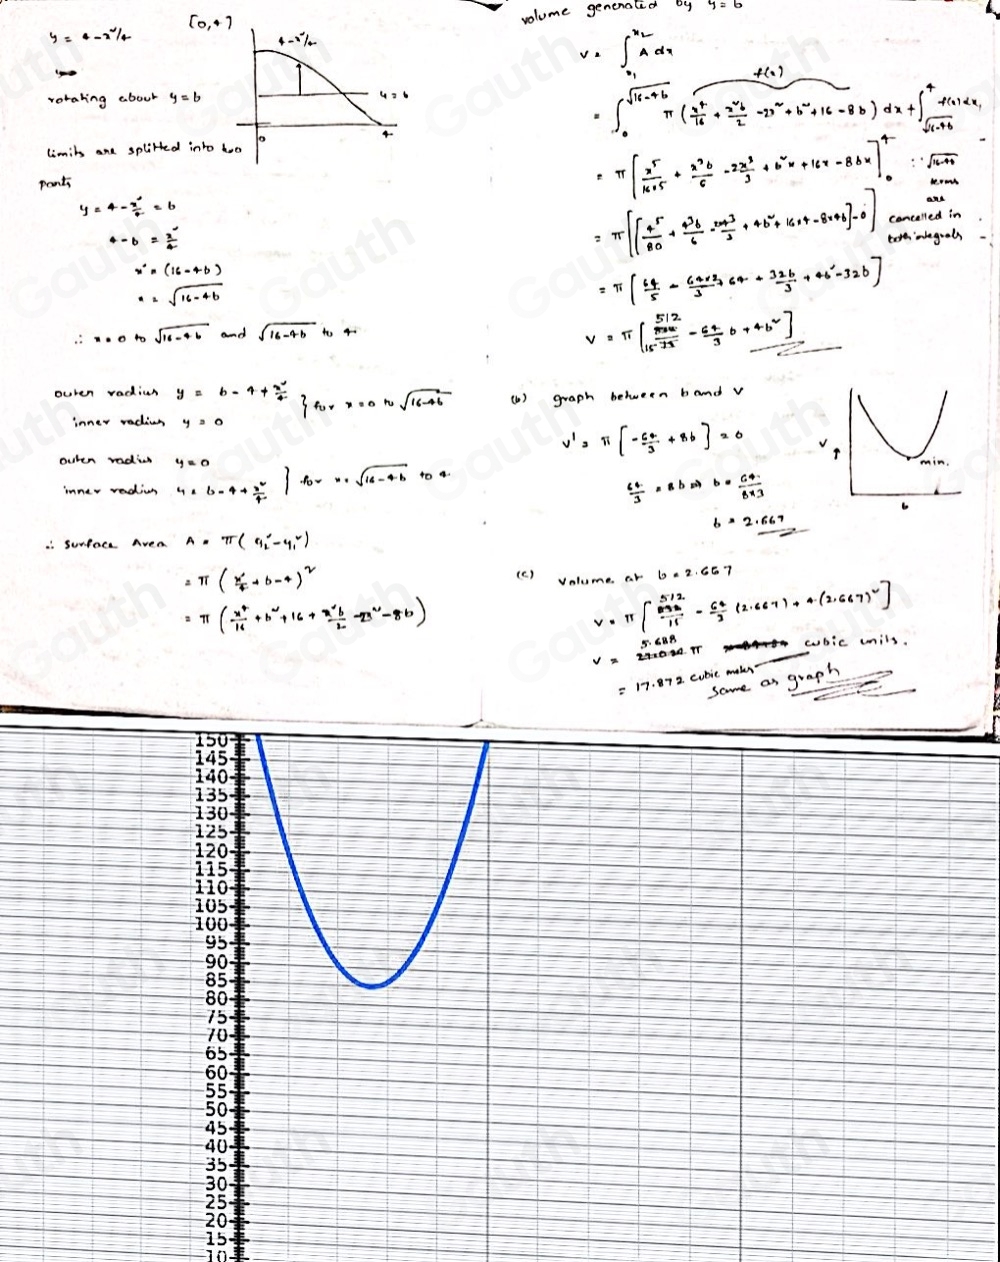 y = 4 - x²/4 [0,4]
4-x²/4
rotating about y=b
y = b
0 4
limits are splitted into two
parts
y = 4 - x²/4 = b
4-b = x²/4
x² = (16-4b)
x = √16-4b
∴ x=0 to √16-4b and √16-4b to 4
outer radius y = b-4+x²/4 } for x=0 to √16-4b
inner radius y=0
outer radius y=0
inner radius y = b-4+x²/4 } for x=√16-4b to 4
∴ Surface Area A = π(y₂²-y₁²)
= π(x²/4+b-4)²
= π(x⁴/16+b²+16+x²b/2-2x²-8b)
volume generated by y=b
V = ∫ x₁ x₂ A dx
f(x)
= ∫ 0 √16-4b π(x⁴/16+x²b/2-2x²+b²+16-8b) dx + ∫ √16-4b 4 f(x)dx,
= π[x⁵/16×5+x³b/6-2x³/3+b²x+16x-8bx] 4 0 ∵ √16-4b
terms
are
= π[[4⁵/80+4³b/6-2×4³/3+4b²+16×4-8×4b]-0] cancelled in
both integrals
= π[64/5-64×2/3+64+32b/3+4b²-32b]
V = π[512/15-64/3 b+4b²]
(b) graph between b and V
V' = π[-64/3+8b] = 0
V
min.
64/3 = 8b ⇒ b = 64/8×3
b
b = 2.667
(c) Volume at b=2.667
V = π[512/15-64/3(2.667)+4(2.667)²]
V = 5.688 π cubic units.
= 17.872 cubic meters
Same as graph
150
145
140
135
130
125
120
115
110
105
100
95
90
85
80
75
70
65
60
55
50
45
40
35
30
25
20
15
10